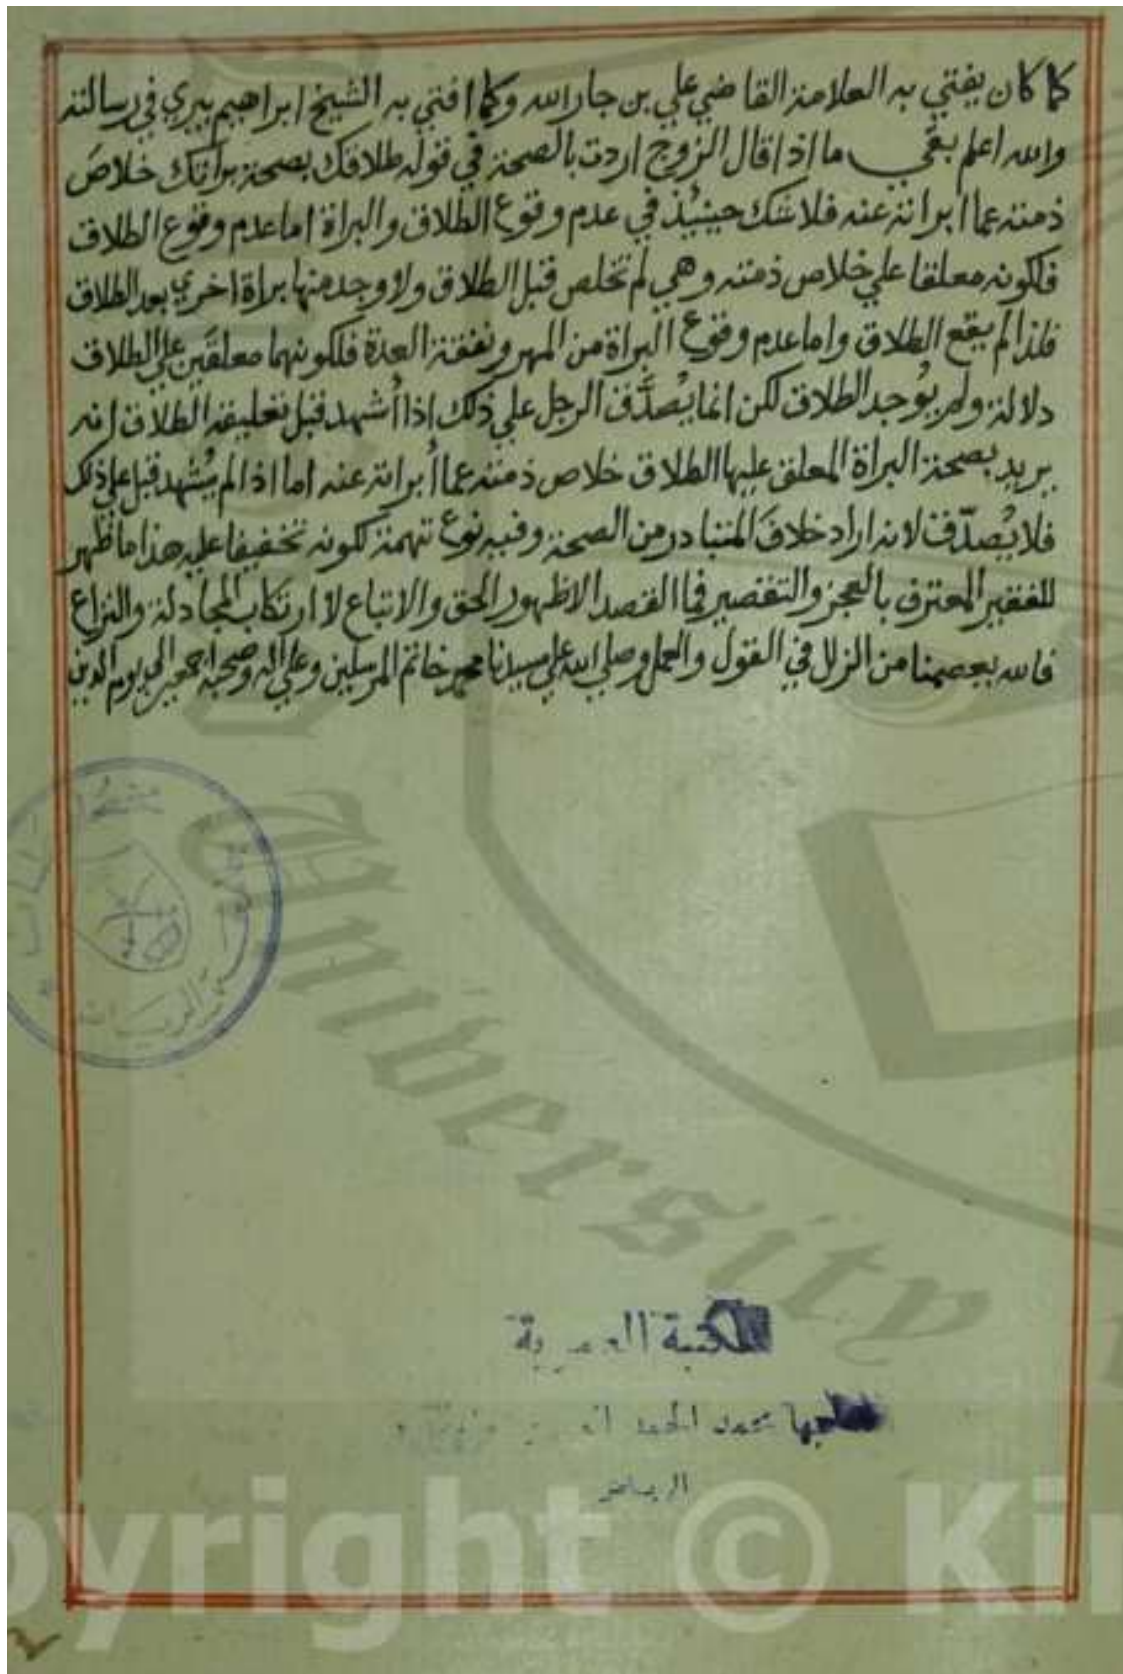 كما كان يفتي به العلامة القاضي علي بن جار الله وكما افتي به الشيخ ابراهيم بيري في رسالته
والله اعلم بقي ما اذا قال الزوج اردت بالصحة في قوله طلاقك بصحة براتك خلاصَ
ذمته عما ابراته عنه فلا شك حينيذ في عدم وقوع الطلاق والبراة اما عدم وقوع الطلاق
فلكونه معلقا علي خلاص ذمته وهي لم تخلص قبل الطلاق ولا وجد منها براة اخري بعد الطلاق
فلذا لم يقع الطلاق واما عدم وقوع البراة من المهر ونفقة العدة فلكونهما معلقَين علي الطلاق
دلالة ولم يُوجد الطلاق لكن انما يُصدَّق الرجل علي ذلك اذا أشهد قبل تعليقه الطلاق انه
يريد بصحة البراة المعلق عليها الطلاق خلاص ذمته عما أبراته عنه اما اذا لم يُشهد قبل علي ذلك
فلا يُصدّق لانه اراد خلافَ المتبادر من الصحة وفيه نوع تهمة لكونه تخفيفا عليه هذا ما ظهر
للفقير المعترف بالعجز والتقصير فما القصد الا ظهور الحق والاتباع لا ارتكاب المجادلة والنزاع
فالله يعصمنا من الزلل في القول والعمل وصلي الله علي سيدنا محمد خاتم المرسلين وعلي اله وصحبه اجمعين الي يوم الدين
المكتبة العمرية
لصاحبها محمد الحمد
الرياض
University
Copyright © Kin